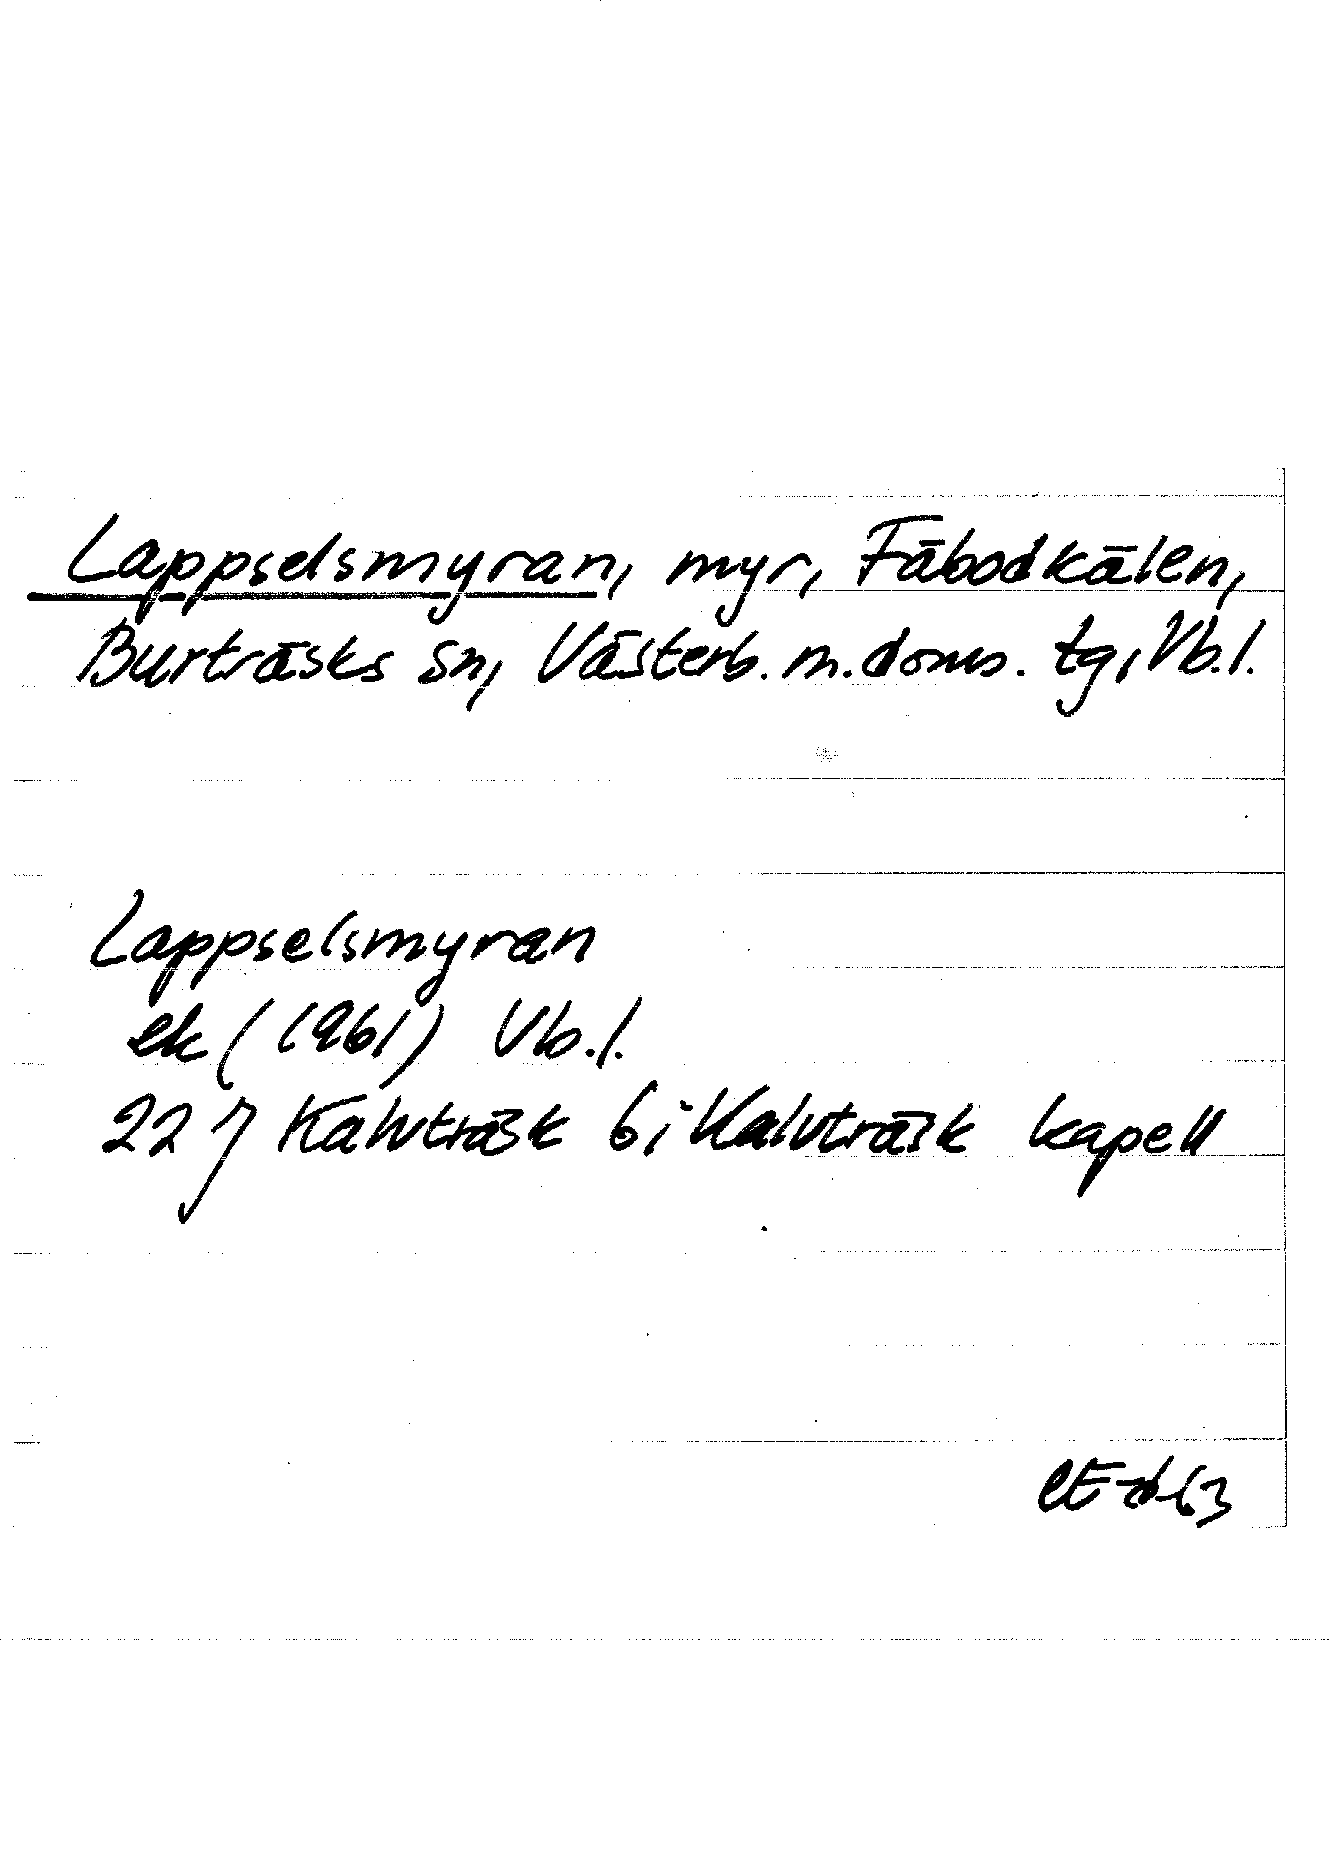 Lappselsmyran, myr, Fäbodkälen,
Burträsks sn, Västerb. m. doms. tg, Vb.l.
Lappselsmyran
ek (1961) Vb.l.
22 J Kalvträsk 6i Kalvträsk kapell
CE 63